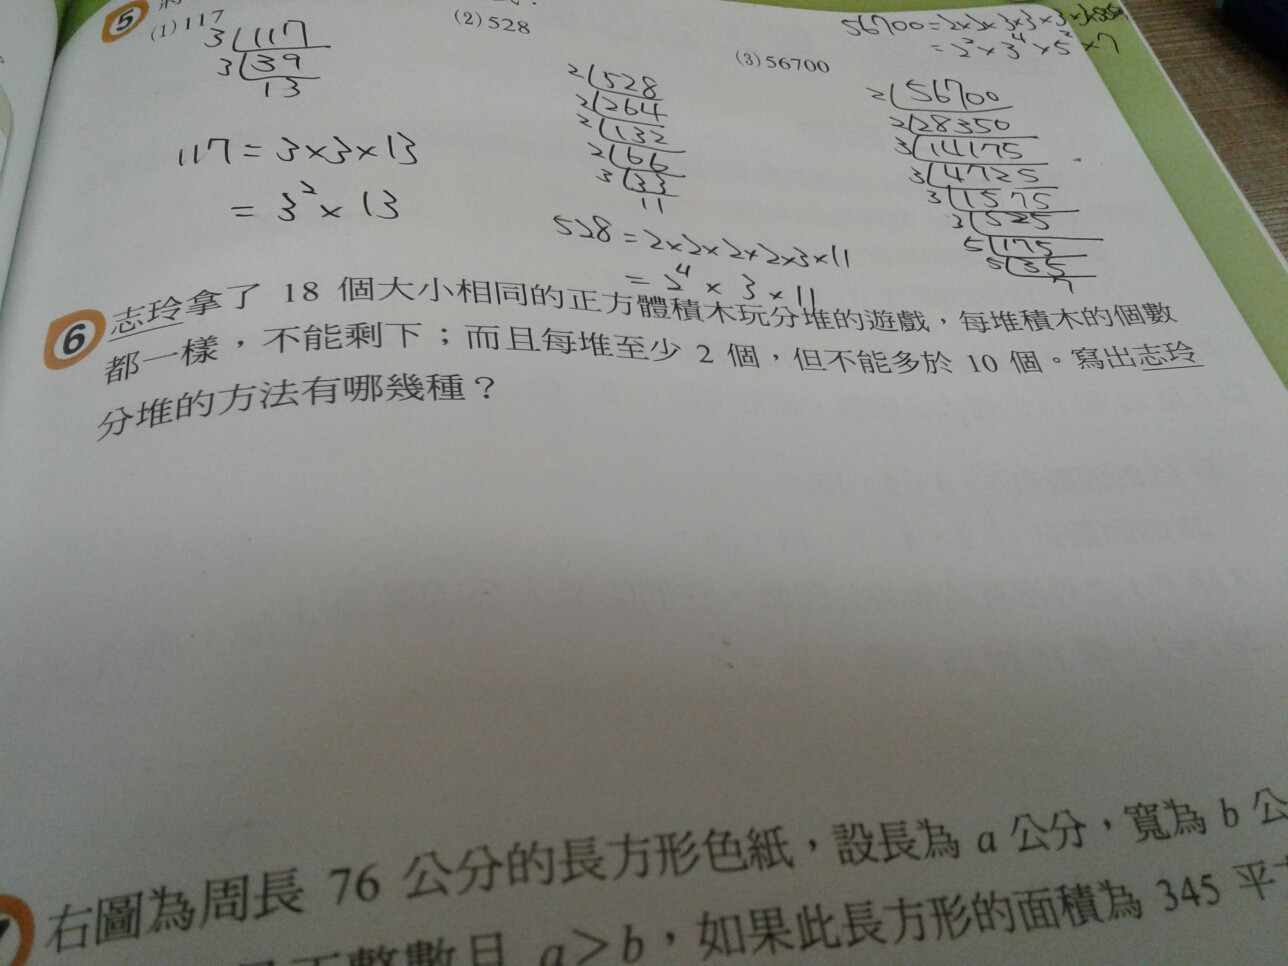 5
(1) 117
(2) 528
(3) 56700
3 117
3 39
13
117 = 3×3×13
= 3² × 13
2 528
2 264
2 132
2 66
3 33
11
528 = 2×2×2×2×3×11
= 2⁴ × 3 × 11
56700 = 2×2×3×3×3×3×5×5×7
= 2² × 3⁴ × 5² × 7
2 56700
2 28350
3 14175
3 4725
3 1575
3 525
5 175
5 35
7
6 志玲拿了 18 個大小相同的正方體積木玩分堆的遊戲，每堆積木的個數
都一樣，不能剩下；而且每堆至少 2 個，但不能多於 10 個。寫出志玲
分堆的方法有哪幾種？
右圖為周長 76 公分的長方形色紙，設長為 a 公分，寬為 b 公
正整數且 a＞b，如果此長方形的面積為 345 平